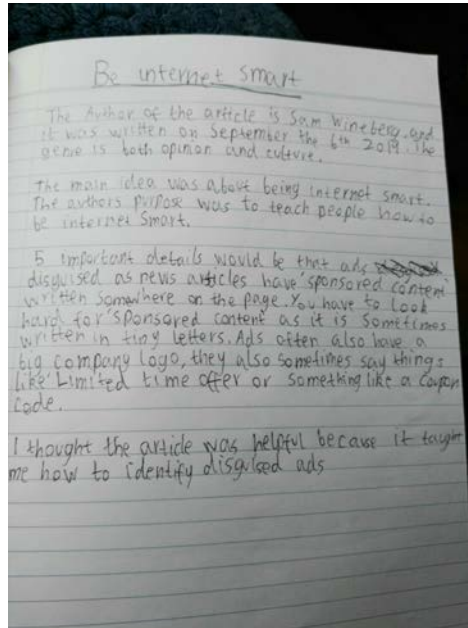 Be internet smart
The Author of the article is Sam Wineberg, and
it was written on September the 6th 2019. The
genre is both opinion and culture.
The main idea was about being internet smart.
The authors purpose was to teach people how to
be internet smart.
5 important details would be that ads
disguised as news articles have 'sponsored content'
written somewhere on the page. You have to look
hard for 'sponsored content' as it is sometimes
written in tiny letters. Ads often also have a
big company logo, they also sometimes say things
like 'Limited time offer or something like a coupon
code.
I thought the article was helpful because it taught
me how to identify disguised ads